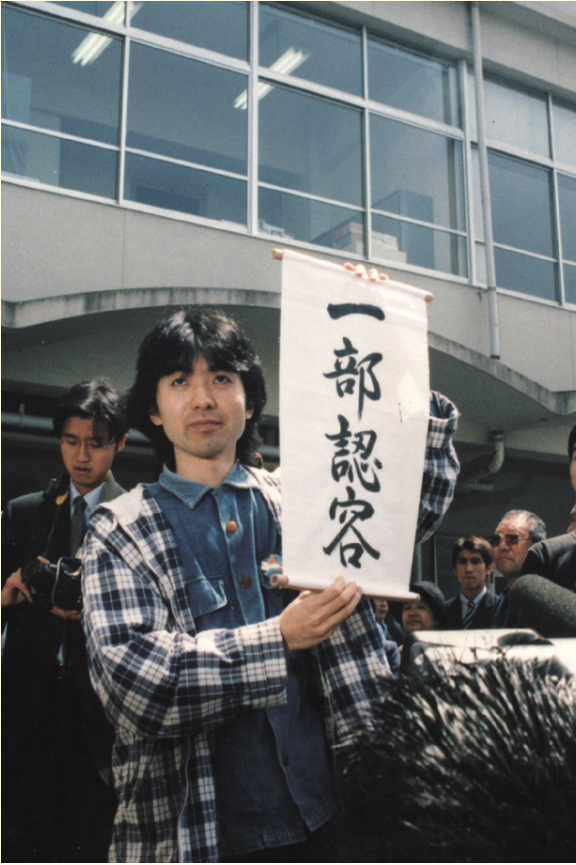 一部認容